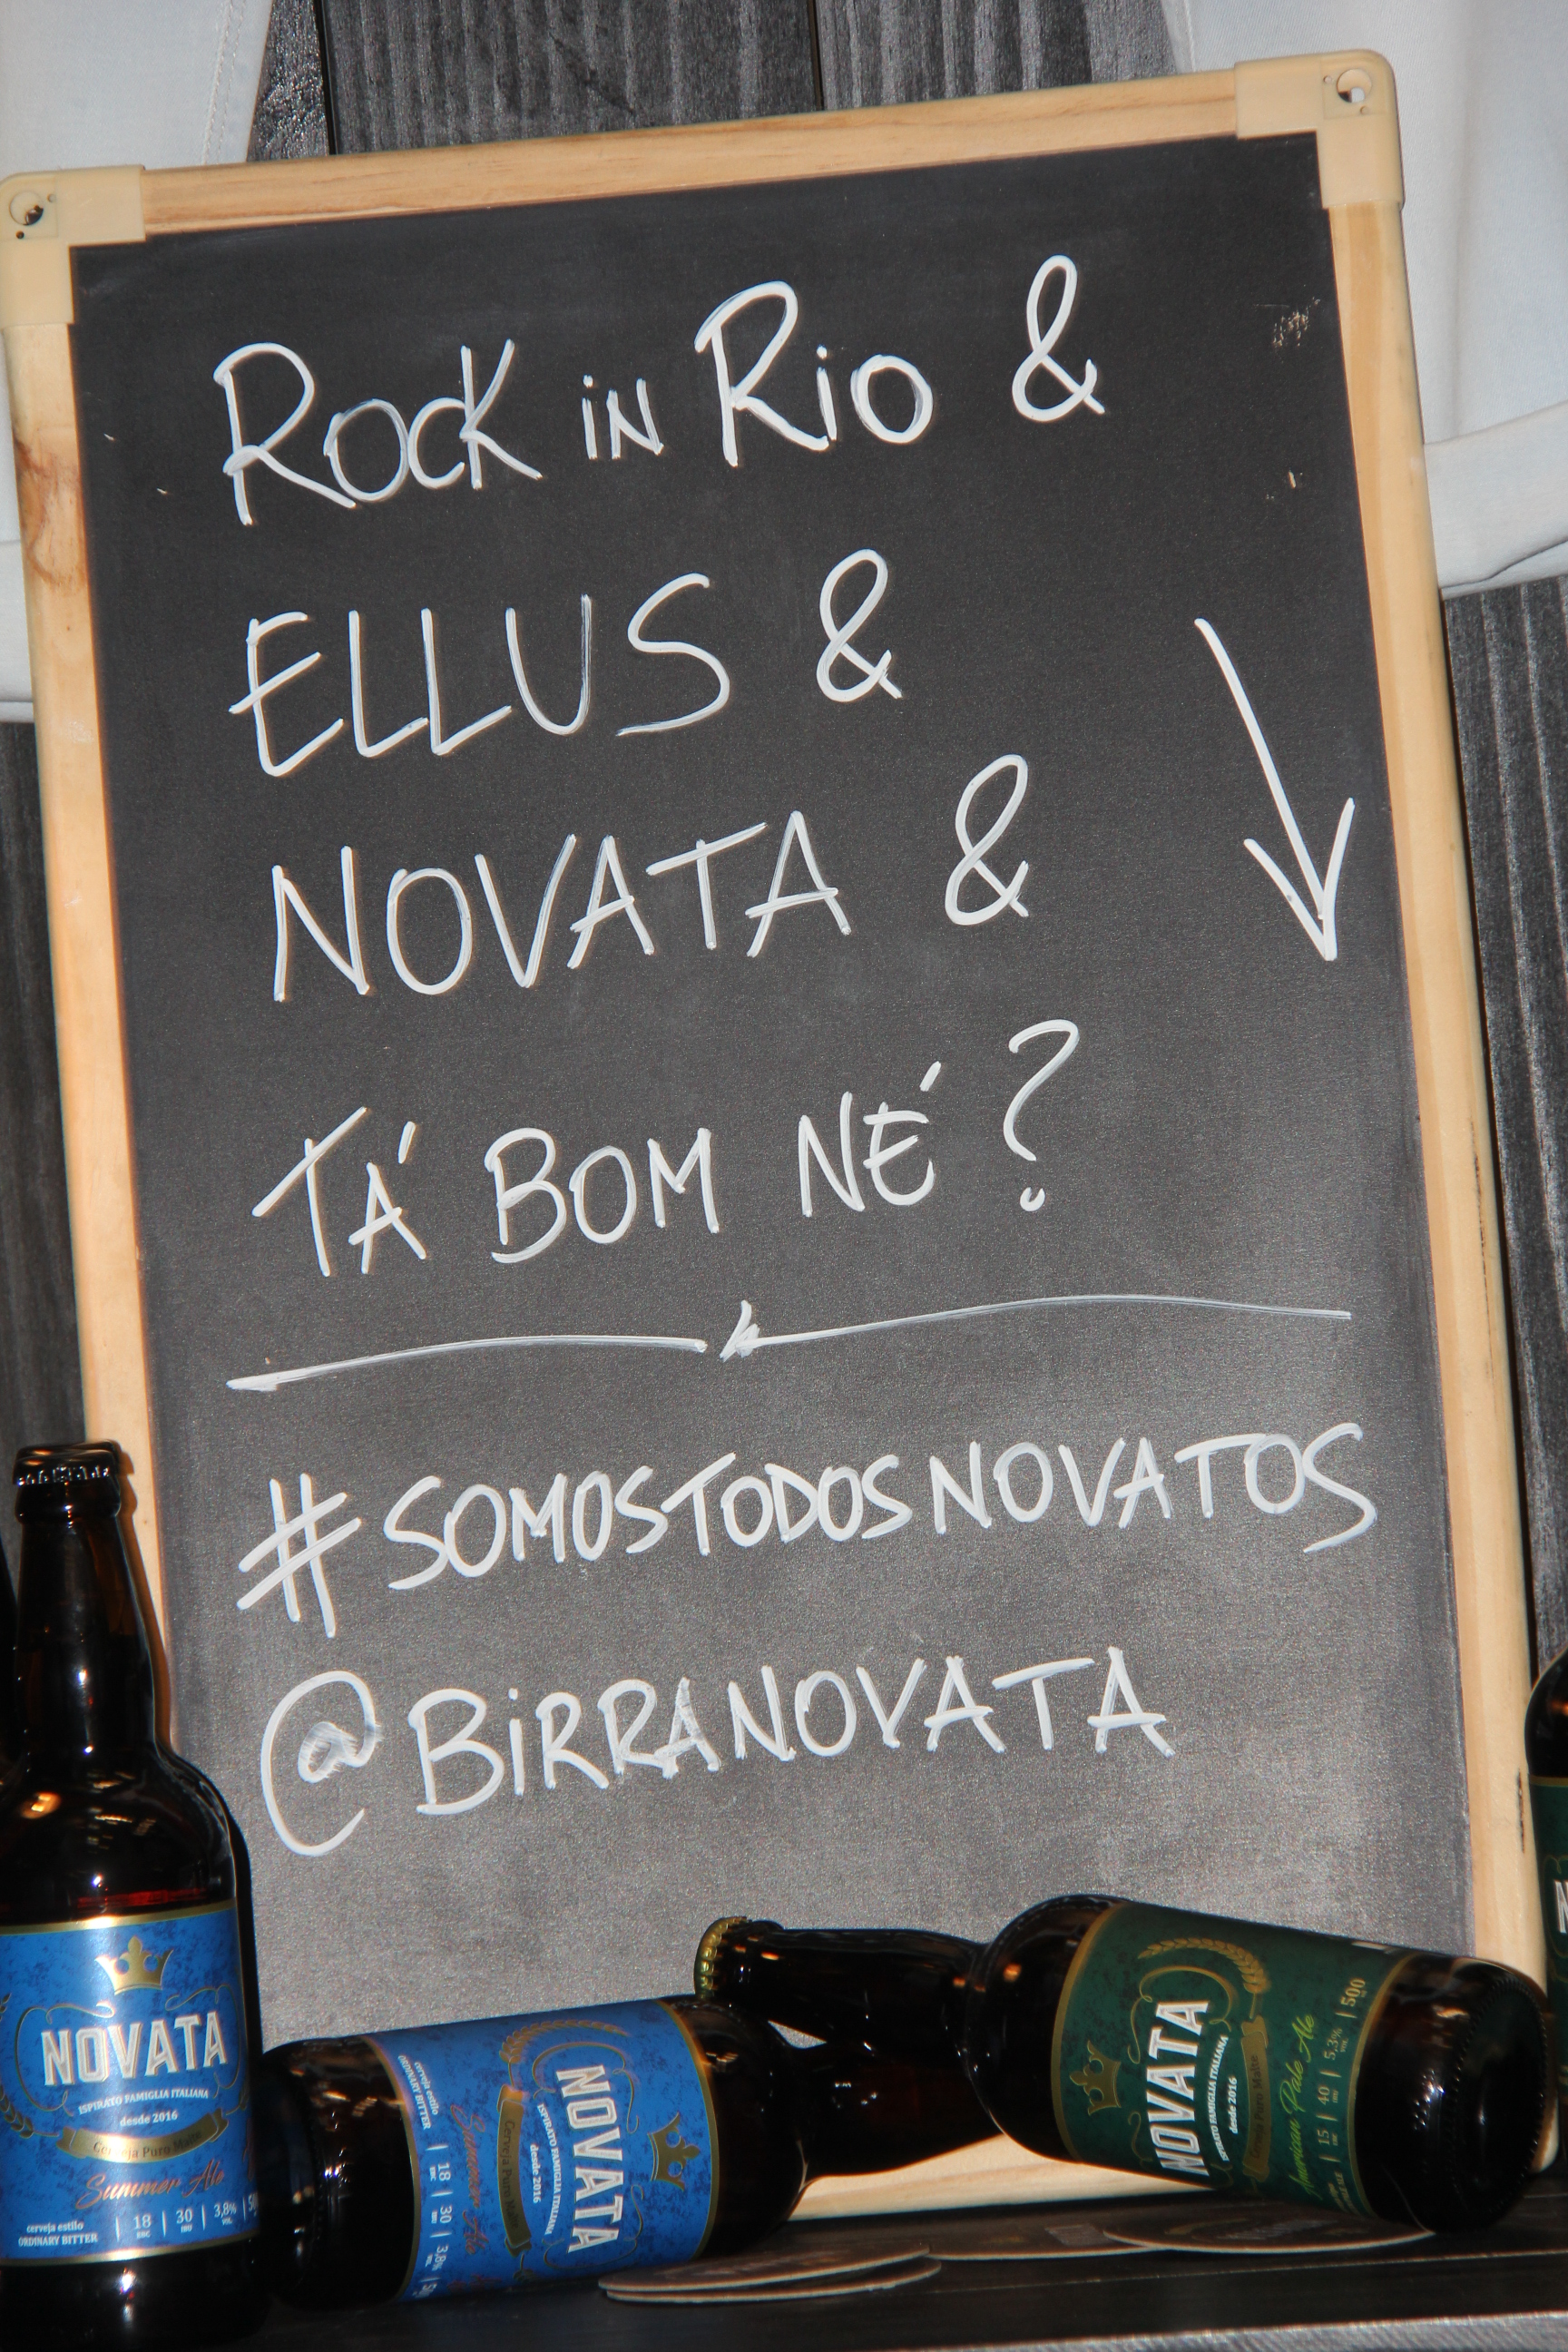 Rock in Rio &
ELLUS &
NOVATA &
TÁ BOM NÉ?
#SOMOSTODOSNOVATOS
@BIRRANOVATA
NOVATA
ISPIRATO FAMIGLIA ITALIANA
desde 2016
Cerveja Puro Malte
Summer Ale
cerveja estilo
ORDINARY BITTER
18 | 30 | 3,8%
EBC IBU VOL.
NOVATA
ISPIRATO FAMIGLIA ITALIANA
desde 2016
Cerveja Puro Malte
Summer Ale
cerveja estilo
ORDINARY BITTER
18 | 30 | 3,8%
NOVATA
ISPIRATO FAMIGLIA ITALIANA
desde 2016
Cerveja Puro Malte
American Pale Ale
15 | 40 | 5,3% | 500